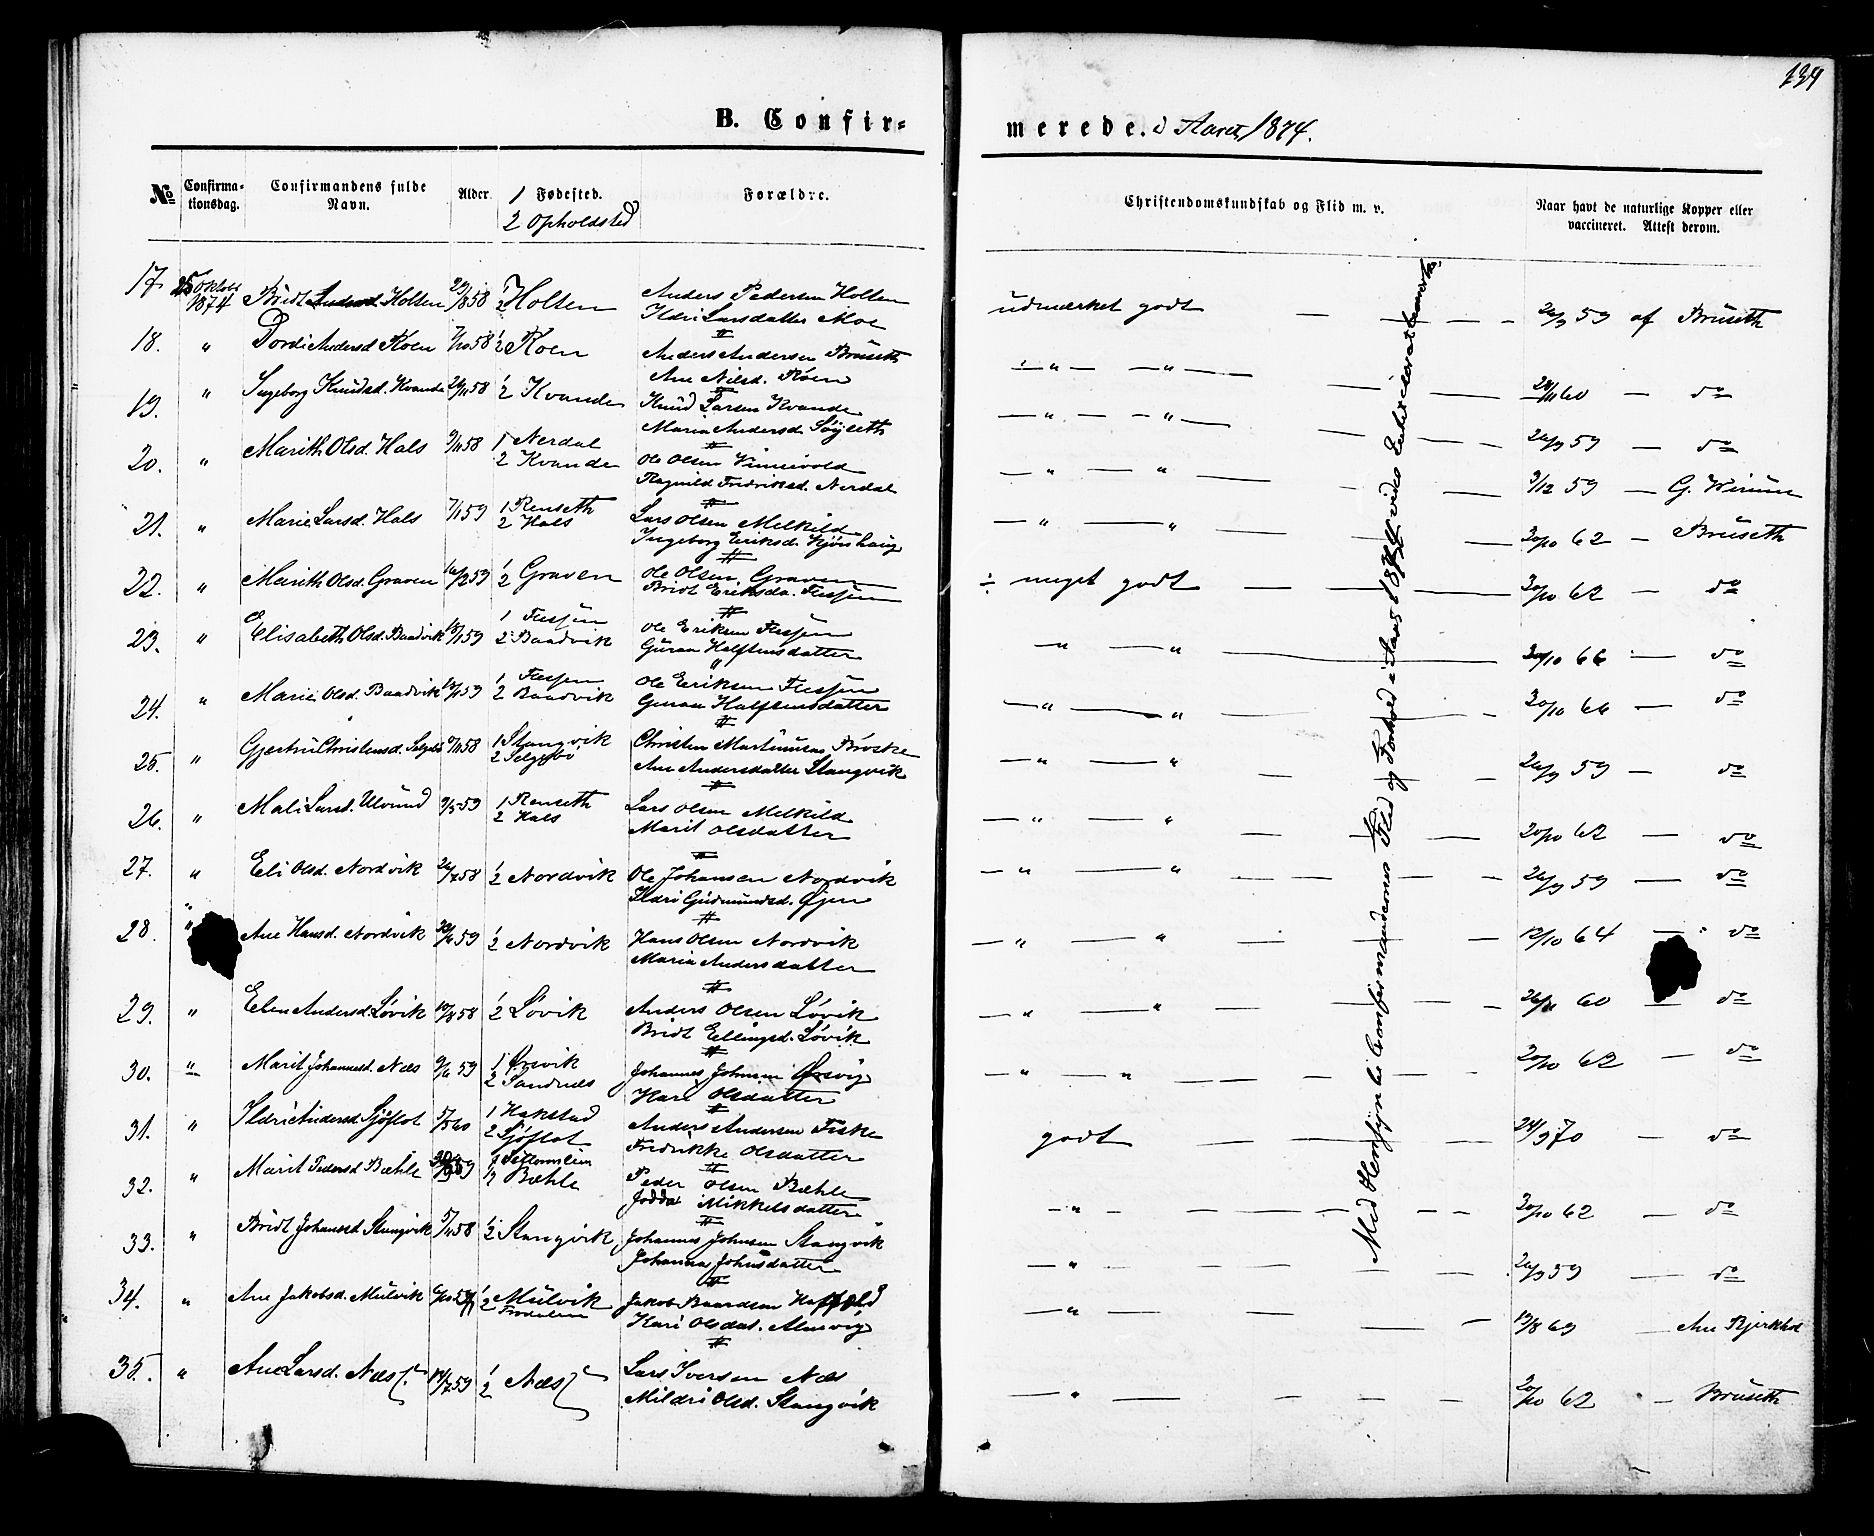 134
B. Confir-
merede. i Aaret 1874.
No
Confirma-
tionsdag.
Confirmandens fulde
Navn.
Alder.
1 Fødested.
2 Opholdsted
Forældre.
Christendomskundskab og Flid m. v.
Naar havt de naturlige Kopper eller
vaccineret. Attest derom.
17. 25 Oktob 1874 Bridt Andersd. Holten 29/8 58 1/2 Holten Anders Pedersen Holten
Ildri Larsdatter Moe
udmærket godt — — — — 26/9 59 af Bruseth
18. " Dordi Andersd Koen 7/10 58 1/2 Koen Anders Andersen Bruseth
Ane Nilsd. Røen
— " — — " — — — 24/11 60 — do
19. " Ingeborg Knudsd. Kvande 29/11 58 1/2 Kvande Knud Larsen Kvande
Maren Andersd Søyseth
— " — — " — — — 26/9 59 — do
20. " Marith Olsd. Hals 9/11 58 1 Nerdal
2 Kvande
Ole Olsen Vinnivold
Ragnild Fredriksd. Nerdal
— " — " — — — 9/12 59 — G.
21. " Marie Larsd. Hals 7/1 59 1 Renseth
2 Hals
Lars Olsen Melkild
Ingeborg Eriksd. Kjønhaug
— " — " — — — 20/10 62 — Bruseth
22. " Marith Olsd. Graven 16/2 59 1/2 Graven Ole Olsen Graven
Bridt Eriksda. Flessen
÷ meget godt — — — 20/10 62 — do
23. " Elisabeth Olsd. Baadvik 18/1 59 1 Flessen
2 Baadvik
Ole Eriksen Flessen
Guran Halfstensdatter
" — " — — 20/10 66 — do
24. " Marie Olsd. Baadvik 18/1 59 1 Flessen
2 Baadvik
Ole Eriksen Flessen
Guran Halfstensdatter
— " — " — — 20/10 66 — do
25. " Gjertru Christensd. 9/11 58 1 Stangvik
2 Selgsbö
Christen Martinusen Brøske
Ane Andersdatter Stangvik
— " — " — — — 26/9 59 — do
26. " Mali Larsd. Ulvund 9/5 59 1 Renseth
2 Hals
Lars Olsen Melkild
Marit Olsdatter
— " — " — — — 20/10 62 — do
27. " Eli Olsd. Nordvik 26/7 58 1/2 Nordvik Ole Johansen Nordvik
Ildri Gudmundsd. Øyen
— " — " — — — 26/9 59 — do
28. " Ane Hansd. Nordvik 59 1/2 Nordvik Hans Olsen Nordvik
Maria Andersdatter
— " — " — — — 12/10 64 — do
29. " Elen Andersd. Løvik 10/8 58 1/2 Løvik Anders Olsen Løvik
Bridt Ellingsd. Løvik
— " — " — — — 60 — do
30. " Marit Johannesd. Næs 9/6 59 1 Ørsvik
2 Sandnes
Johannes Johnsen Ørsvig
Kari Olsdatter
— " — " — — — 20/10 62 — do
31. " Ildri Andersd. Sjöflot 5/5 60 1 Hakstad
2 Sjöflot
Anders Andersen Fiske
Fredrikke Olsdatter
godt — — — 24/9 70 — do
32. " Marit Pedersd Bæhle 59 1
2 Bæhle
Peder Olsen Bæhle
Jodda Mikkelsdatter
— " — — — 20/10 62 — do
33. " Bridt Johannesd Stangvik 5/11 58 1/2 Stangvik Johannes Johnsen Stangvik
Johanna Johnsdatter
— " — — — 26/9 59 — do
34. " Ane Jakobsd. Mulvik 6/10 1 Mulvik
2
Jakob Baardsen Hoffæld
Kari Olsdat. Almvig
— " — — — 19/8 69 — Ane Bjerkhol
35. " Ane Larsd. Næs 14/7 59 1/2 Næs Lars Iversen Næs
Mildri Olsd. Stangvik
— " — — — 20/10 62 — Bruseth
Med Hensyn til Confirmandernes Flid og Forhold i Aaret 1874 vides Intet